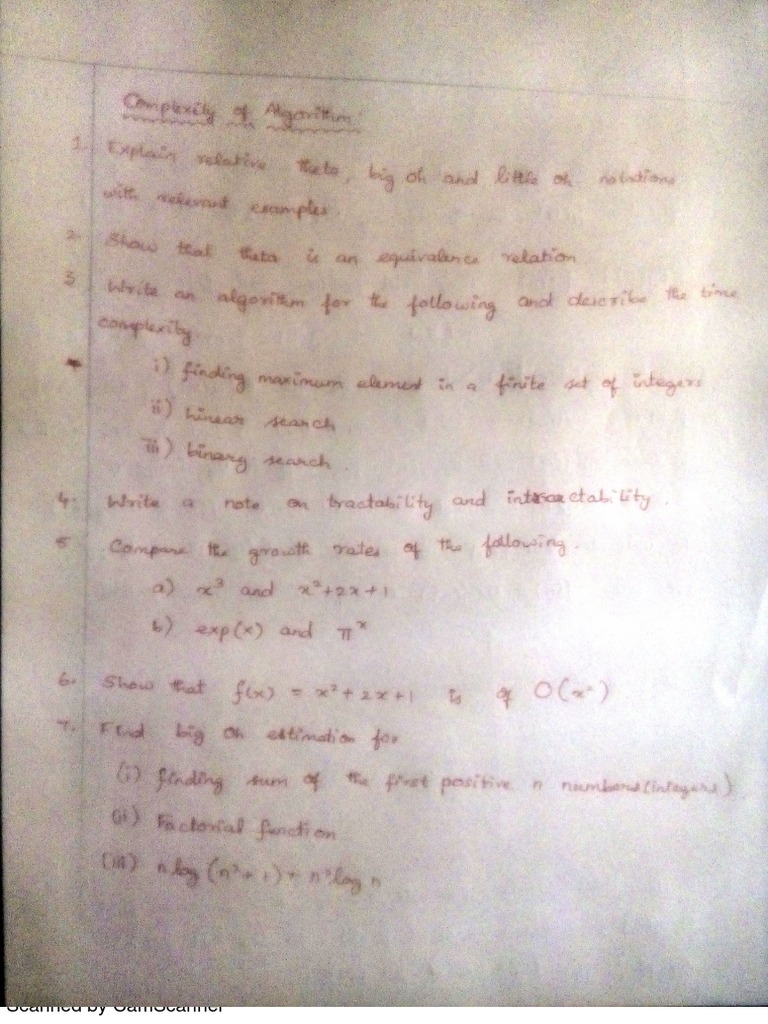 Complexity of Algorithm
1. Explain relative theta, big oh and little oh notations
with relevant examples.
2. Show that theta is an equivalence relation
3. Write an algorithm for the following and describe the time
complexity.
i) finding maximum element in a finite set of integers
ii) Linear search
iii) binary search.
4. Write a note on tractability and intractability.
5 Compare the growth rates of the following.
a) x³ and x²+2x+1
b) exp(x) and π^x
6. Show that f(x) = x²+2x+1 is of O(x²)
7. Find big oh estimation for
(i) finding sum of the first positive n numbers (integers)
(ii) Factorial function
(iii) n log (n²+1) + n² log n
Scanned by CamScanner